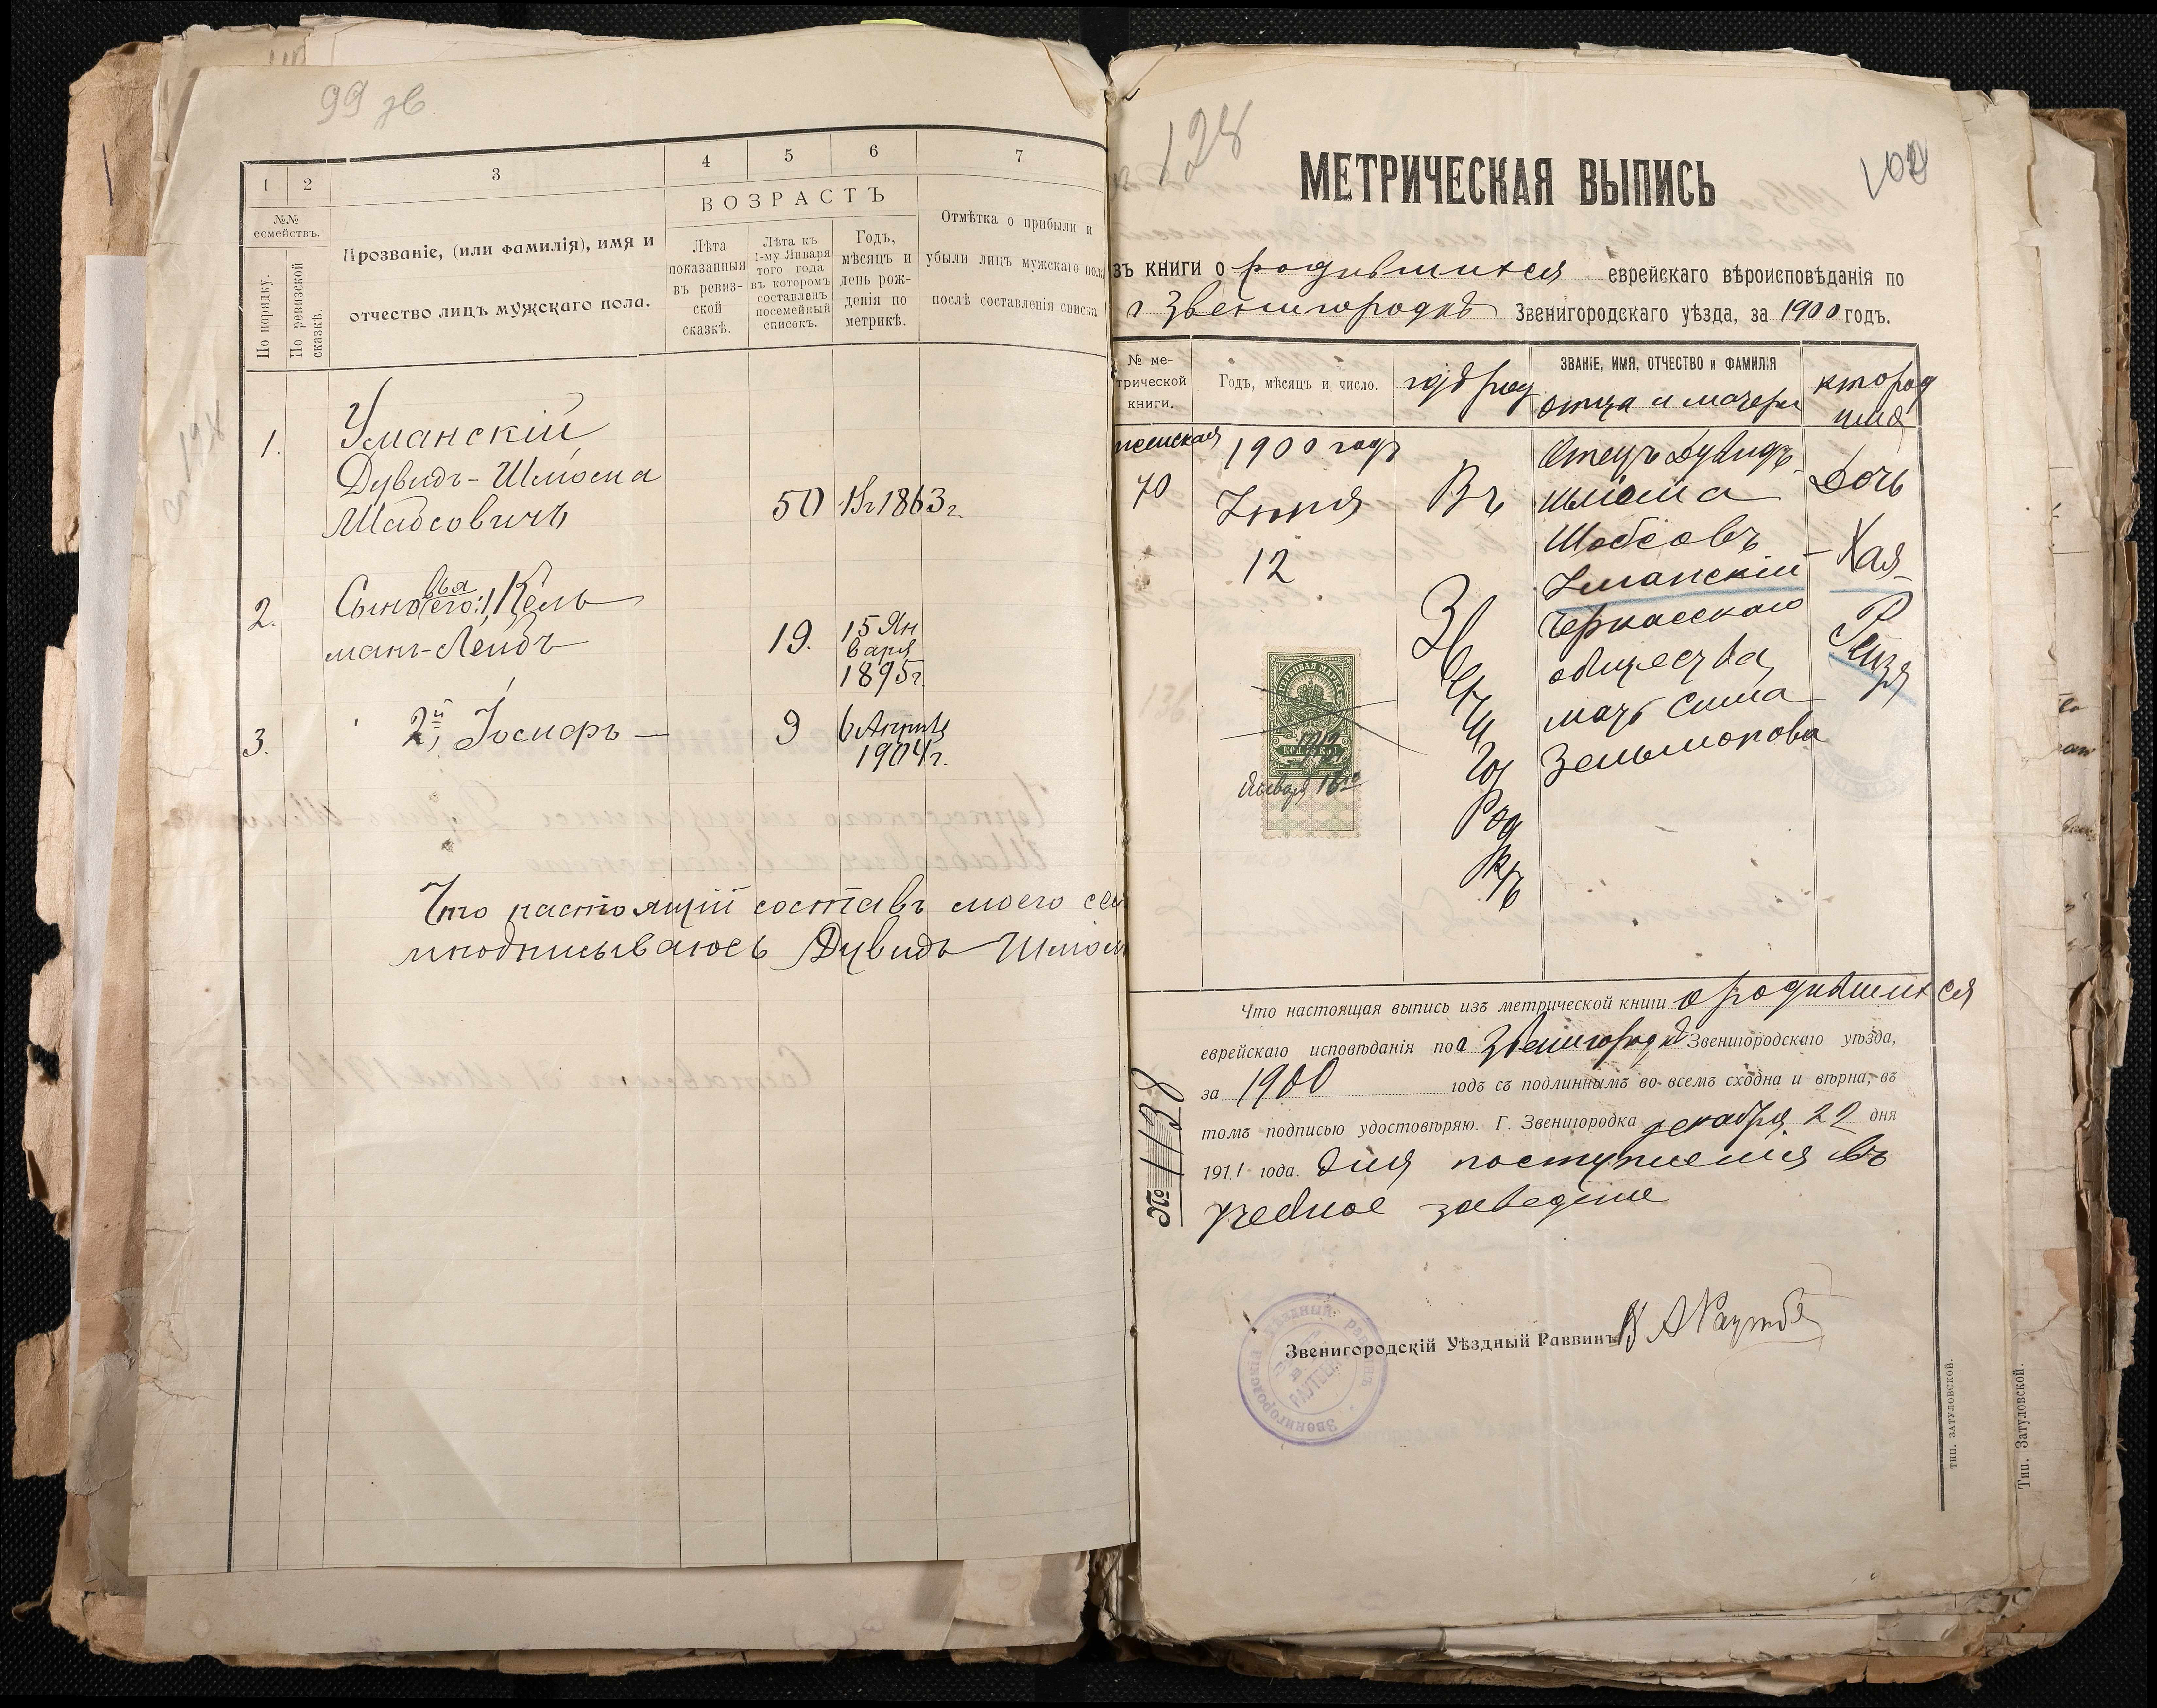 99 зв
1
2
3
4
5
6
7
№№
семействъ.
По порядку.
По ревизской
сказкѣ.
Прозваніе, (или фамилія), имя и
отчество лицъ мужскаго пола.
ВОЗРАСТЪ
Лѣта
показанныя
въ ревиз-
ской
сказкѣ.
Лѣта къ
1-му Января
того года
въ которомъ
составленъ
посемейный
списокъ.
Годъ,
мѣсяцъ и
день рож-
денія по
метрикѣ.
Отмѣтка о прибыли и
убыли лицъ мужскаго пола
послѣ составленія списка
1.
Уманскій
Дувидъ-Шлиома
Шабсовичъ
50
1863г.
2.
Сыновья его: 1, Кель
манъ-Лейбъ
19.
15 Ян
варя
1895г.
3.
2й, Іосифъ —
9
6 Апрѣля
1904г.
Что настоящій составъ моего сем
подписываюсь Дувидъ Шлиом
128
100
МЕТРИЧЕСКАЯ ВЫПИСЬ
зъ книги о родившихся еврейскаго вѣроисповѣданія по
г Звенигородкѣ Звенигородскаго уѣзда, за 1900 годъ.
№ ме-
трической
книги.
Годъ, мѣсяцъ и число.
гдѣ род
ЗВАНІЕ, ИМЯ, ОТЧЕСТВО и ФАМИЛІЯ
отца и матери
кто род
ился
женская
70
1900 годъ
Іюня
12
Въ
Зве
ни
го
род
кѣ
Отецъ Дувидъ-
Шлиома
Шабсовъ
Уманскій
Черкасскаго
общества,
мать Сима
Зельмонова
Дочь
Хая-
Рейзя
ГЕРБОВАЯ МАРКА
75 КОП.
Января 16го
Что настоящая выпись изъ метрической книги о родившихся
еврейскаго исповѣданія по г Звенигородкѣ Звенигородскаго уѣзда,
за 1900 годъ съ подлиннымъ во всемъ сходна и вѣрна, въ
томъ подписью удостовѣряю. Г. Звенигородка декабря 22 дня
1911 года. для поступленія въ
учебное заведеніе
№ 1138
Звенигородскій Уѣздный Раввинъ
ТИП. ЗАТУЛОВСКОЙ.
Тип. Затуловской.